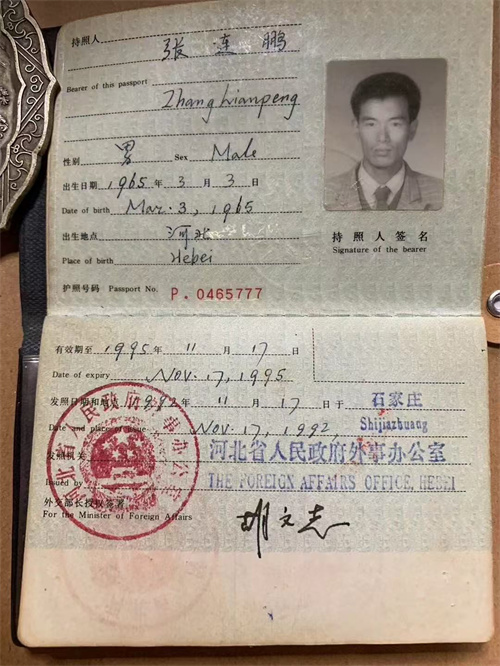 持照人 张连鹏
Bearer of this passport
Zhang Lianpeng
性别 男 Sex Male
出生日期 1965 年 3 月 3 日
Date of birth Mar. 3, 1965
出生地点 河北
Place of birth Hebei
护照号码 Passport No. P.0465777
持照人签名
Signature of the bearer
有效期至 1995 年 11 月 17 日
Date of expiry Nov. 17, 1995
发照日期和地点 1992 年 11 月 17 日于 石家庄
Shijiazhuang
Date and place of issue Nov. 17, 1992
发照机关 河北省人民政府外事办公室
Issued by THE FOREIGN AFFAIRS OFFICE, HEBEI
外交部长授权签署
For the Minister of Foreign Affairs
胡文志
河北省人民政府外事办公室